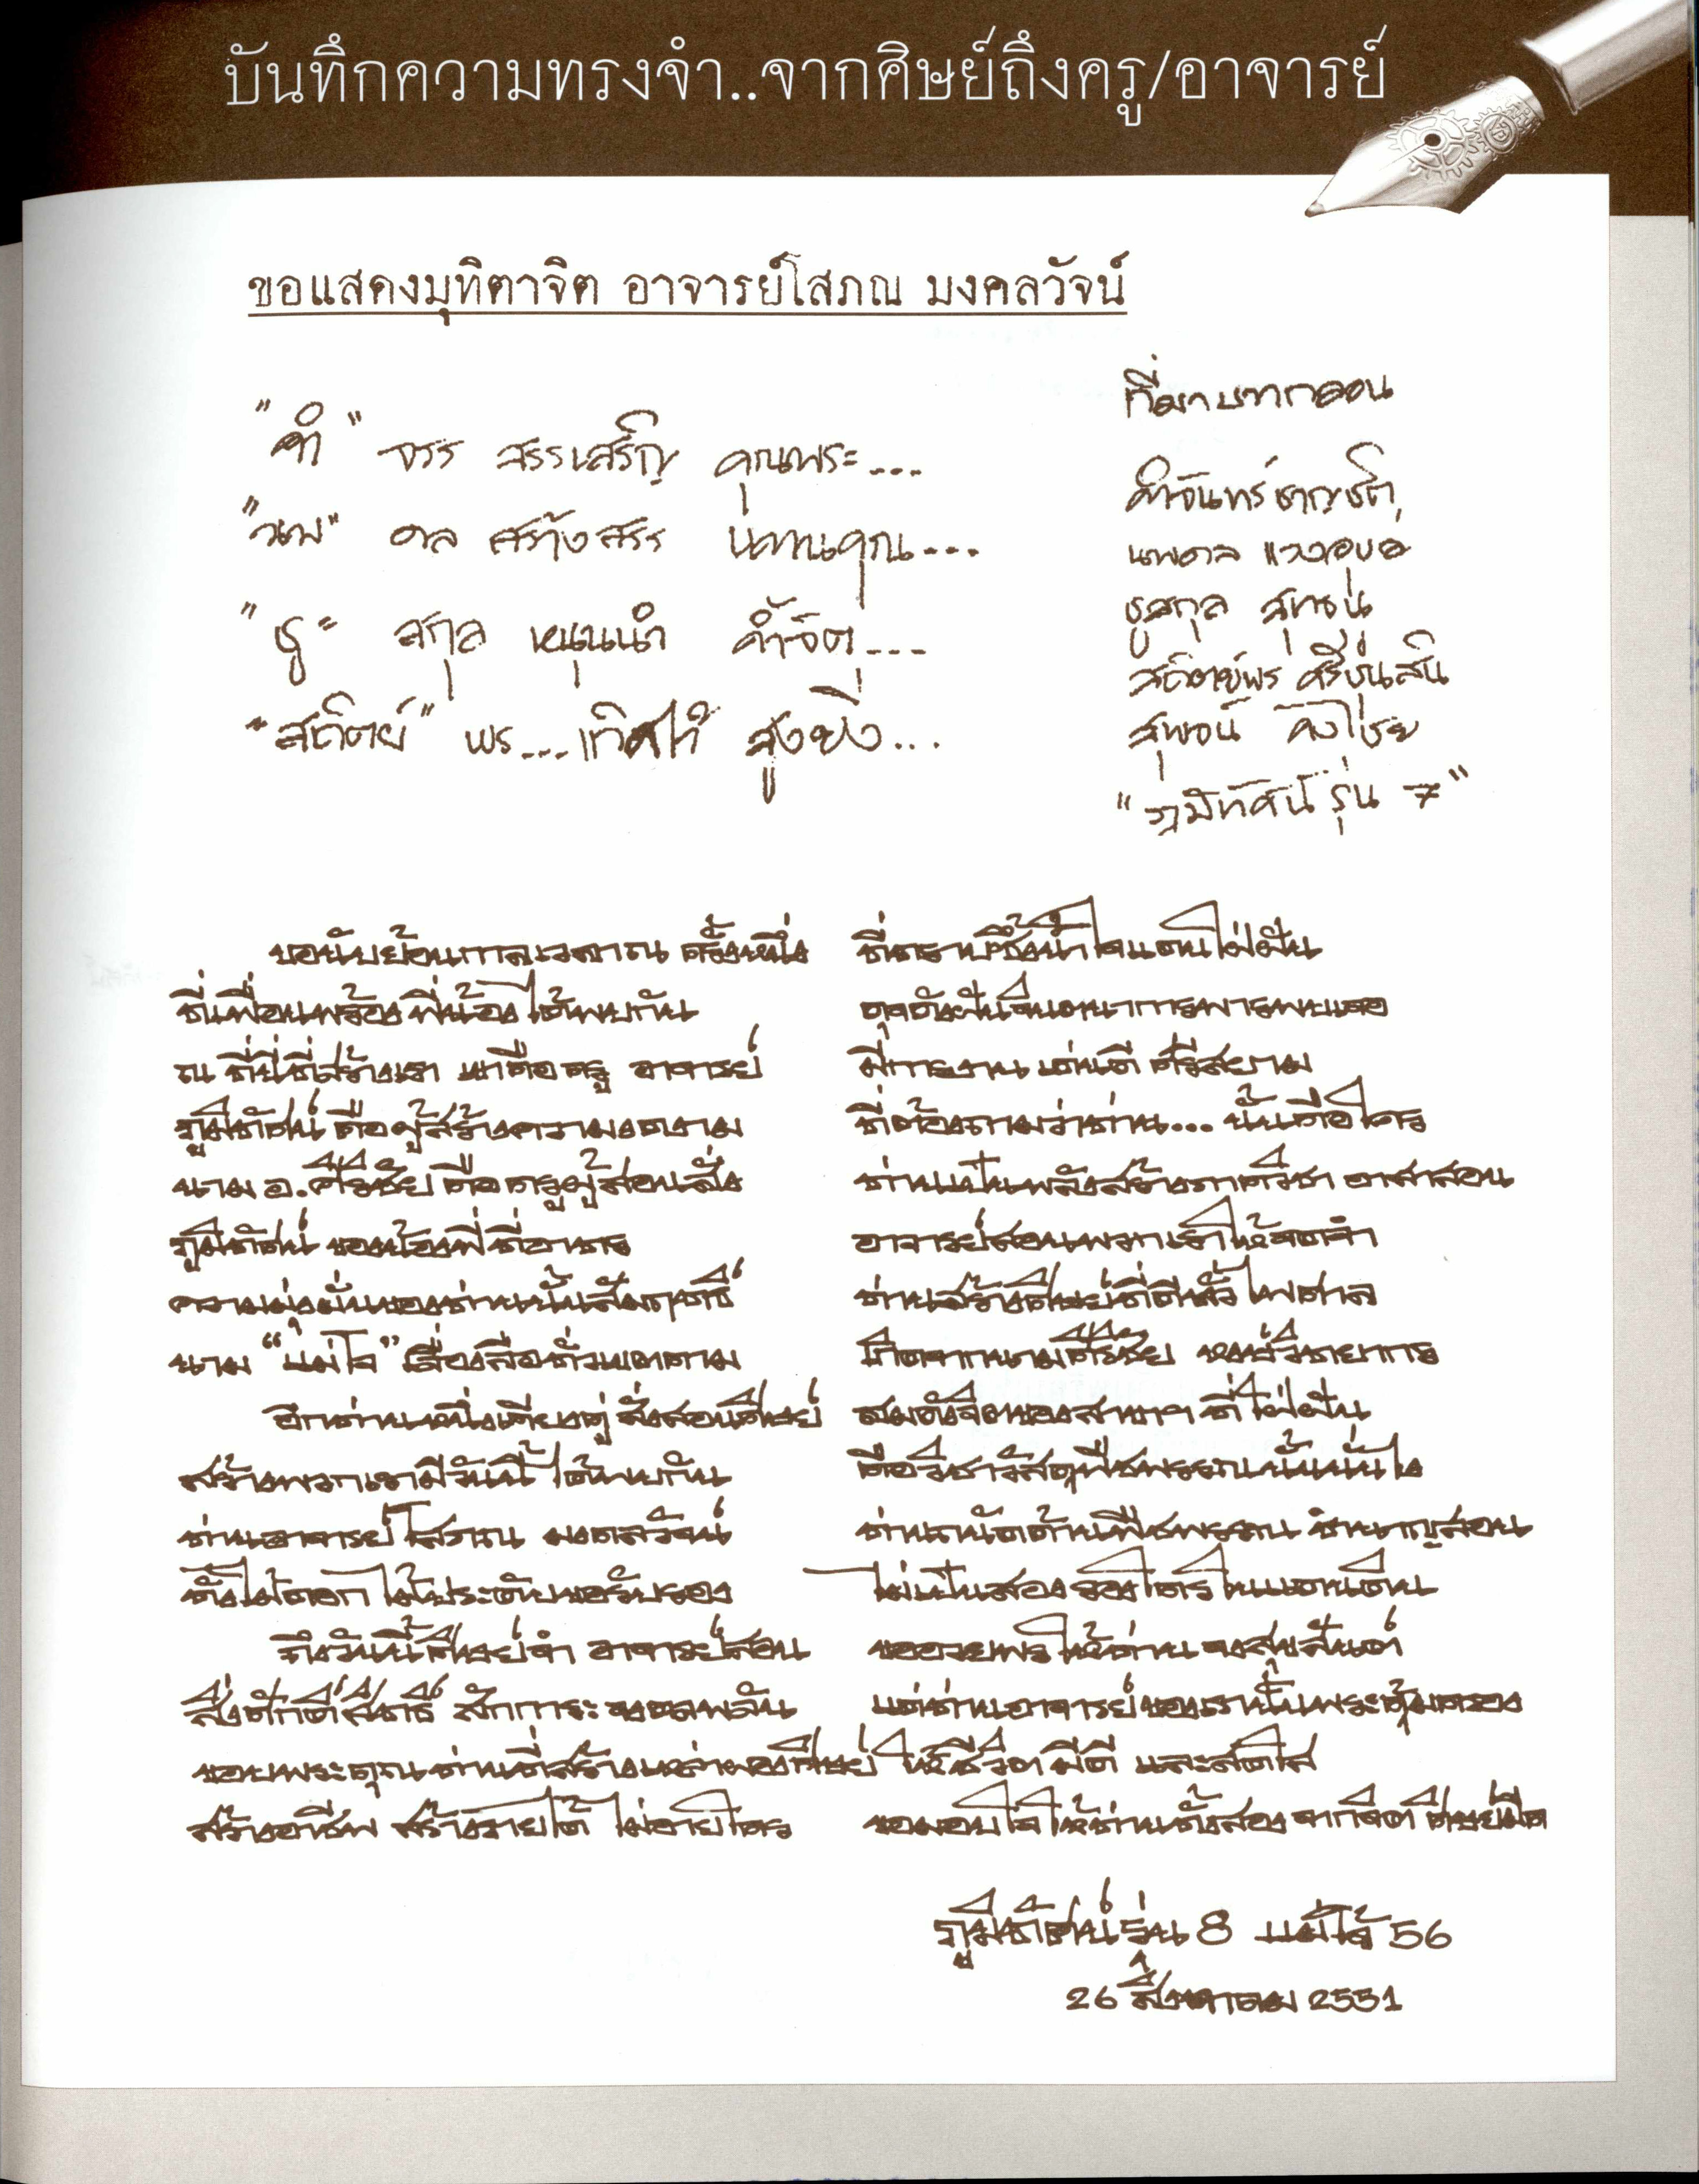 บันทึกความทรงจำ..จากศิษย์ถึงครู/อาจารย์
ขอแสดงมุทิตาจิต อาจารย์โสภณ มงคลวัจน์
"คำ" จรร สรรเสริญ คุณพระ...
"นพ" ดล สร้างสรร แทนคุณ...
"ชู" สกุล หนุนนำ ค้ำจิต...
"สถิตย์" พร...เทิดไท้ สูงยิ่ง...
ที่มาบทกลอน
คำจันทร์
นพดล
ชูสกุล
สถิตย์พร
สุพจน์
"ภูมิทัศน์ รุ่น 7"
ขอนับย้อนกาลเวลา ณ ครั้งหนึ่ง ที่ตราบซึ้งน้ำใจแดนใฝ่ฝัน
ที่เพื่อนพร้องพี่น้องได้พบกัน ดุจดังฝันจินตนาการพารพบเจอ
ณ ที่นี่ที่สร้างเรา เขาคือครู อาจารย์ มีการงาน เด่นดี ศรีสยาม
ภูมิทัศน์ คือผู้สร้างความงดงาม ที่ต้องถามว่าท่าน... นั้นคือใคร
นาม อ.ศิริชัย คือครูผู้สอนสั่ง ท่านเป็นพลังสร้างภาควิชา อาสาสอน
ภูมิทัศน์ ของน้องพี่ที่อาทร อาจารย์สอนพวกเราให้จดจำ
ความมุ่งมั่นของท่านนั้นสัมฤทธิ์ ท่านสร้างศิษย์ที่ดีทั่วไพศาล
นาม "แม่โจ้" เลื่องลือทั่วเขตคาม
อีกท่านหนึ่งเคียงคู่ สั่งสอนศิษย์ สมดังจิตของสาขาฯ ที่ใฝ่ฝัน
สร้างพวกเรามีวันนี้ ได้พบกัน คือวิชาวัสดุพืชพรรณนั้นนั่นไง
ท่านอาจารย์โสภณ มงคลวัจน์ ท่านถนัดด้านพืชพรรณ ชำนาญสอน
ทั้งไม้ดอก ไม้ประดับขอรับรอง ไม่เป็นสองรองใครในแดนดิน
ถึงวันนี้ศิษย์จำ อาจารย์สอน ขออวยพรให้ท่าน จงสุขสันต์
สิ่งศักดิ์สิทธิ์ สักการะ จงดลพลัน แด่ท่านอาจารย์ของเรานั้นพระคุ้มครอง
ขอบพระคุณ ท่านที่สร้างเหล่าผองศิษย์ ให้ชีวิต มีดี และสดใส
สร้างอาชีพ สร้างรายได้ ไม่อายใคร ขอมอบใจให้ท่านทั้งสอง จากจิต
ภูมิทัศน์ รุ่น 8 แม่โจ้ 56
26 สิงหาคม 2551